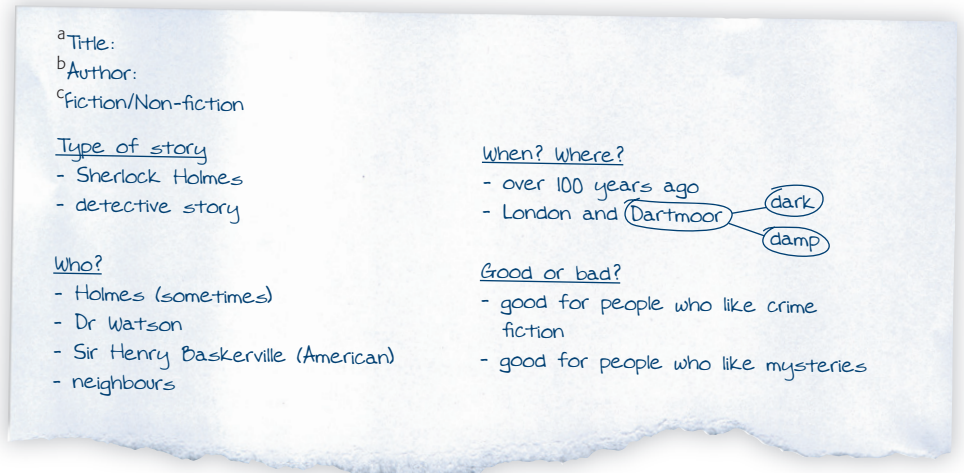 a Title:
b Author:
c Fiction/Non-fiction
Type of story
- Sherlock Holmes
- detective story
Who?
- Holmes (sometimes)
- Dr Watson
- Sir Henry Baskerville (American)
- neighbours
When? Where?
- over 100 years ago
- London and Dartmoor
dark
damp
Good or bad?
- good for people who like crime
fiction
- good for people who like mysteries